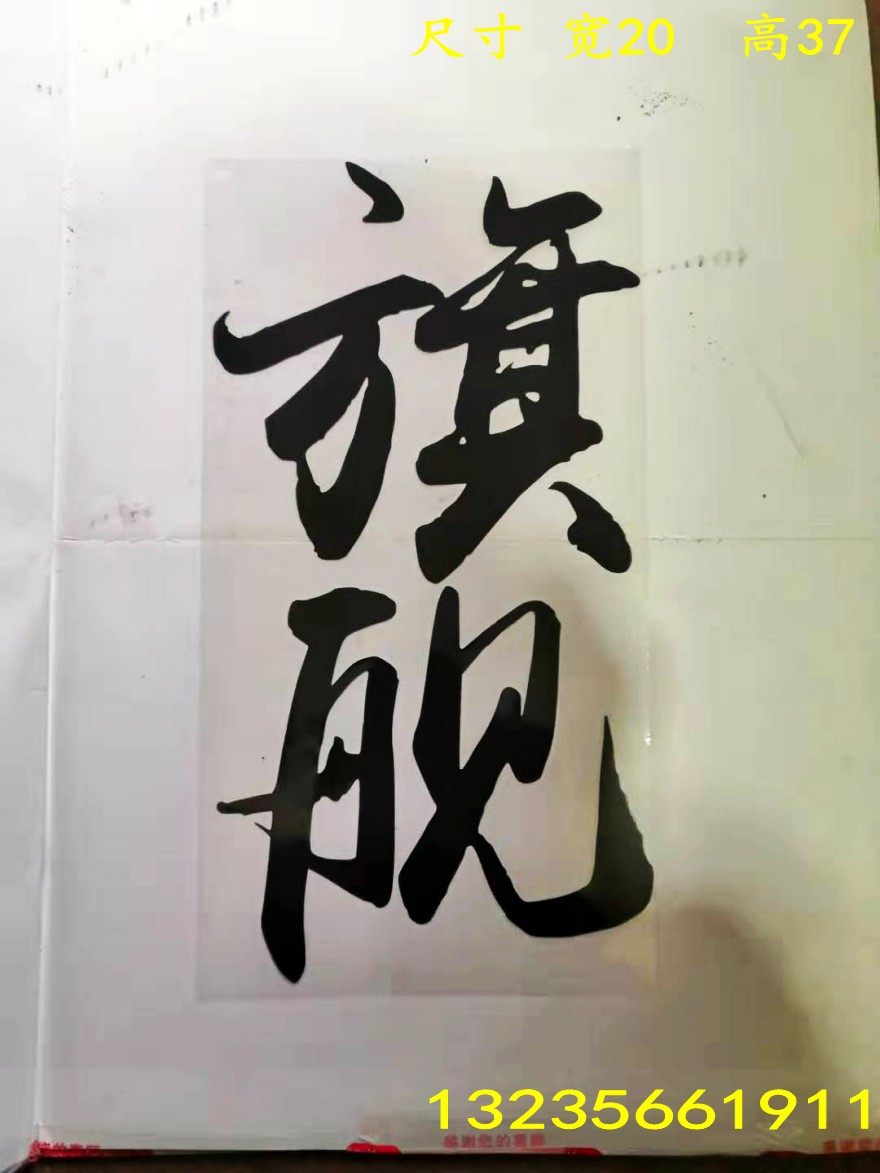 尺寸 宽20 高37
旗
舰
13235661911
感谢您的惠顾